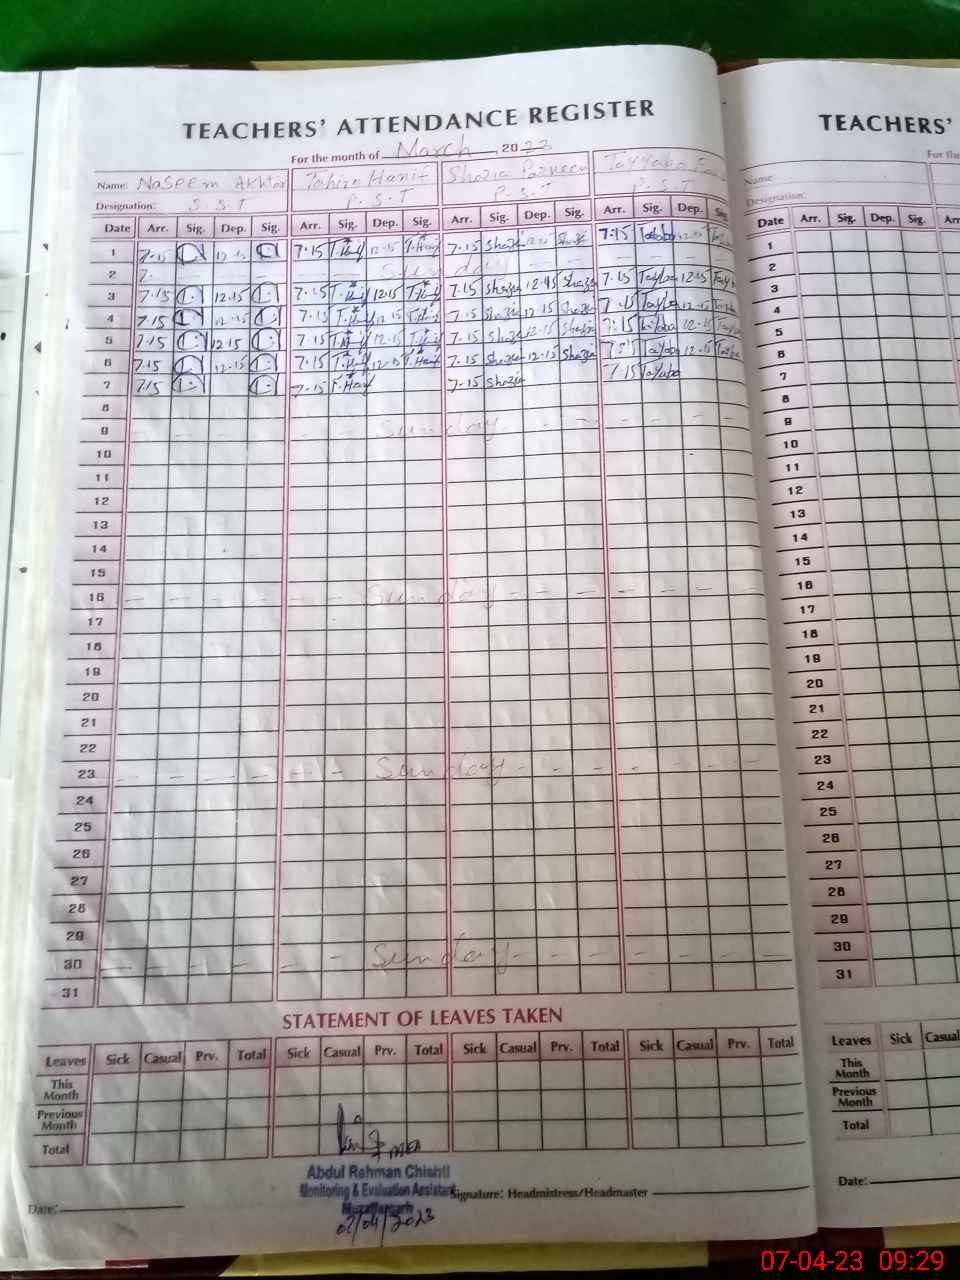 TEACHERS' ATTENDANCE REGISTER
For the month of March, 2023
Name: Naseem Akhtar Tahira Hanif Shazia Parveen Tayyaba
Designation: S.S.T P.S.T P.S.T P.S.T
Date Arr. Sig. Dep. Sig. Arr. Sig. Dep. Sig. Arr. Sig. Dep. Sig. Arr. Sig. Dep. Sig.
1 7.15 12.15 7.15 T.Hanif 12.15 T.Hanif 7.15 Shazia 12.15 Shazia 7:15 Tayyaba 12.15
2 7. Sunday
3 7.15 12.15 7.15 T.Hanif 12.15 T.Hanif 7.15 Shazia 12.15 Shazia 7.15 Tayyaba 12.15
4 7.15 12.15 7.15 T.Hanif 12.15 T.Hanif 7.15 Shazia 12.15 Shazia 7.15 Tayyaba 12.15
5 7.15 12.15 7.15 T.Hanif 12.15 T.Hanif 7.15 Shazia 12.15 Shazia 7:15 12.15
6 7.15 12.15 7.15 T.Hanif 12.15 T.Hanif 7.15 Shazia 12.15 Shazia 7:15 Tayyaba 12.15
7 7.15 7.15 T.Hanif 7.15 Shazia 7.15 Tayyaba
8
9 Sunday
10
11
12
13
14
15
16 Sunday
17
18
19
20
21
22
23 Sunday
24
25
26
27
28
29
30 Sunday
31
STATEMENT OF LEAVES TAKEN
Leaves Sick Casual Prv. Total Sick Casual Prv. Total Sick Casual Prv. Total Sick Casual Prv. Total
This Month
Previous Month
Total
MEA
Abdul Rehman Chishti
Monitoring & Evaluation Assistant
Muzaffargarh
07/04/2023
Date: Signature: Headmistress/Headmaster
TEACHERS'
For the
Name:
Designation:
Date Arr. Sig. Dep. Sig. Arr
1
2
3
4
5
6
7
8
9
10
11
12
13
14
15
16
17
18
19
20
21
22
23
24
25
26
27
28
29
30
31
Leaves Sick Casual
This Month
Previous Month
Total
Date:
07-04-23 09:29